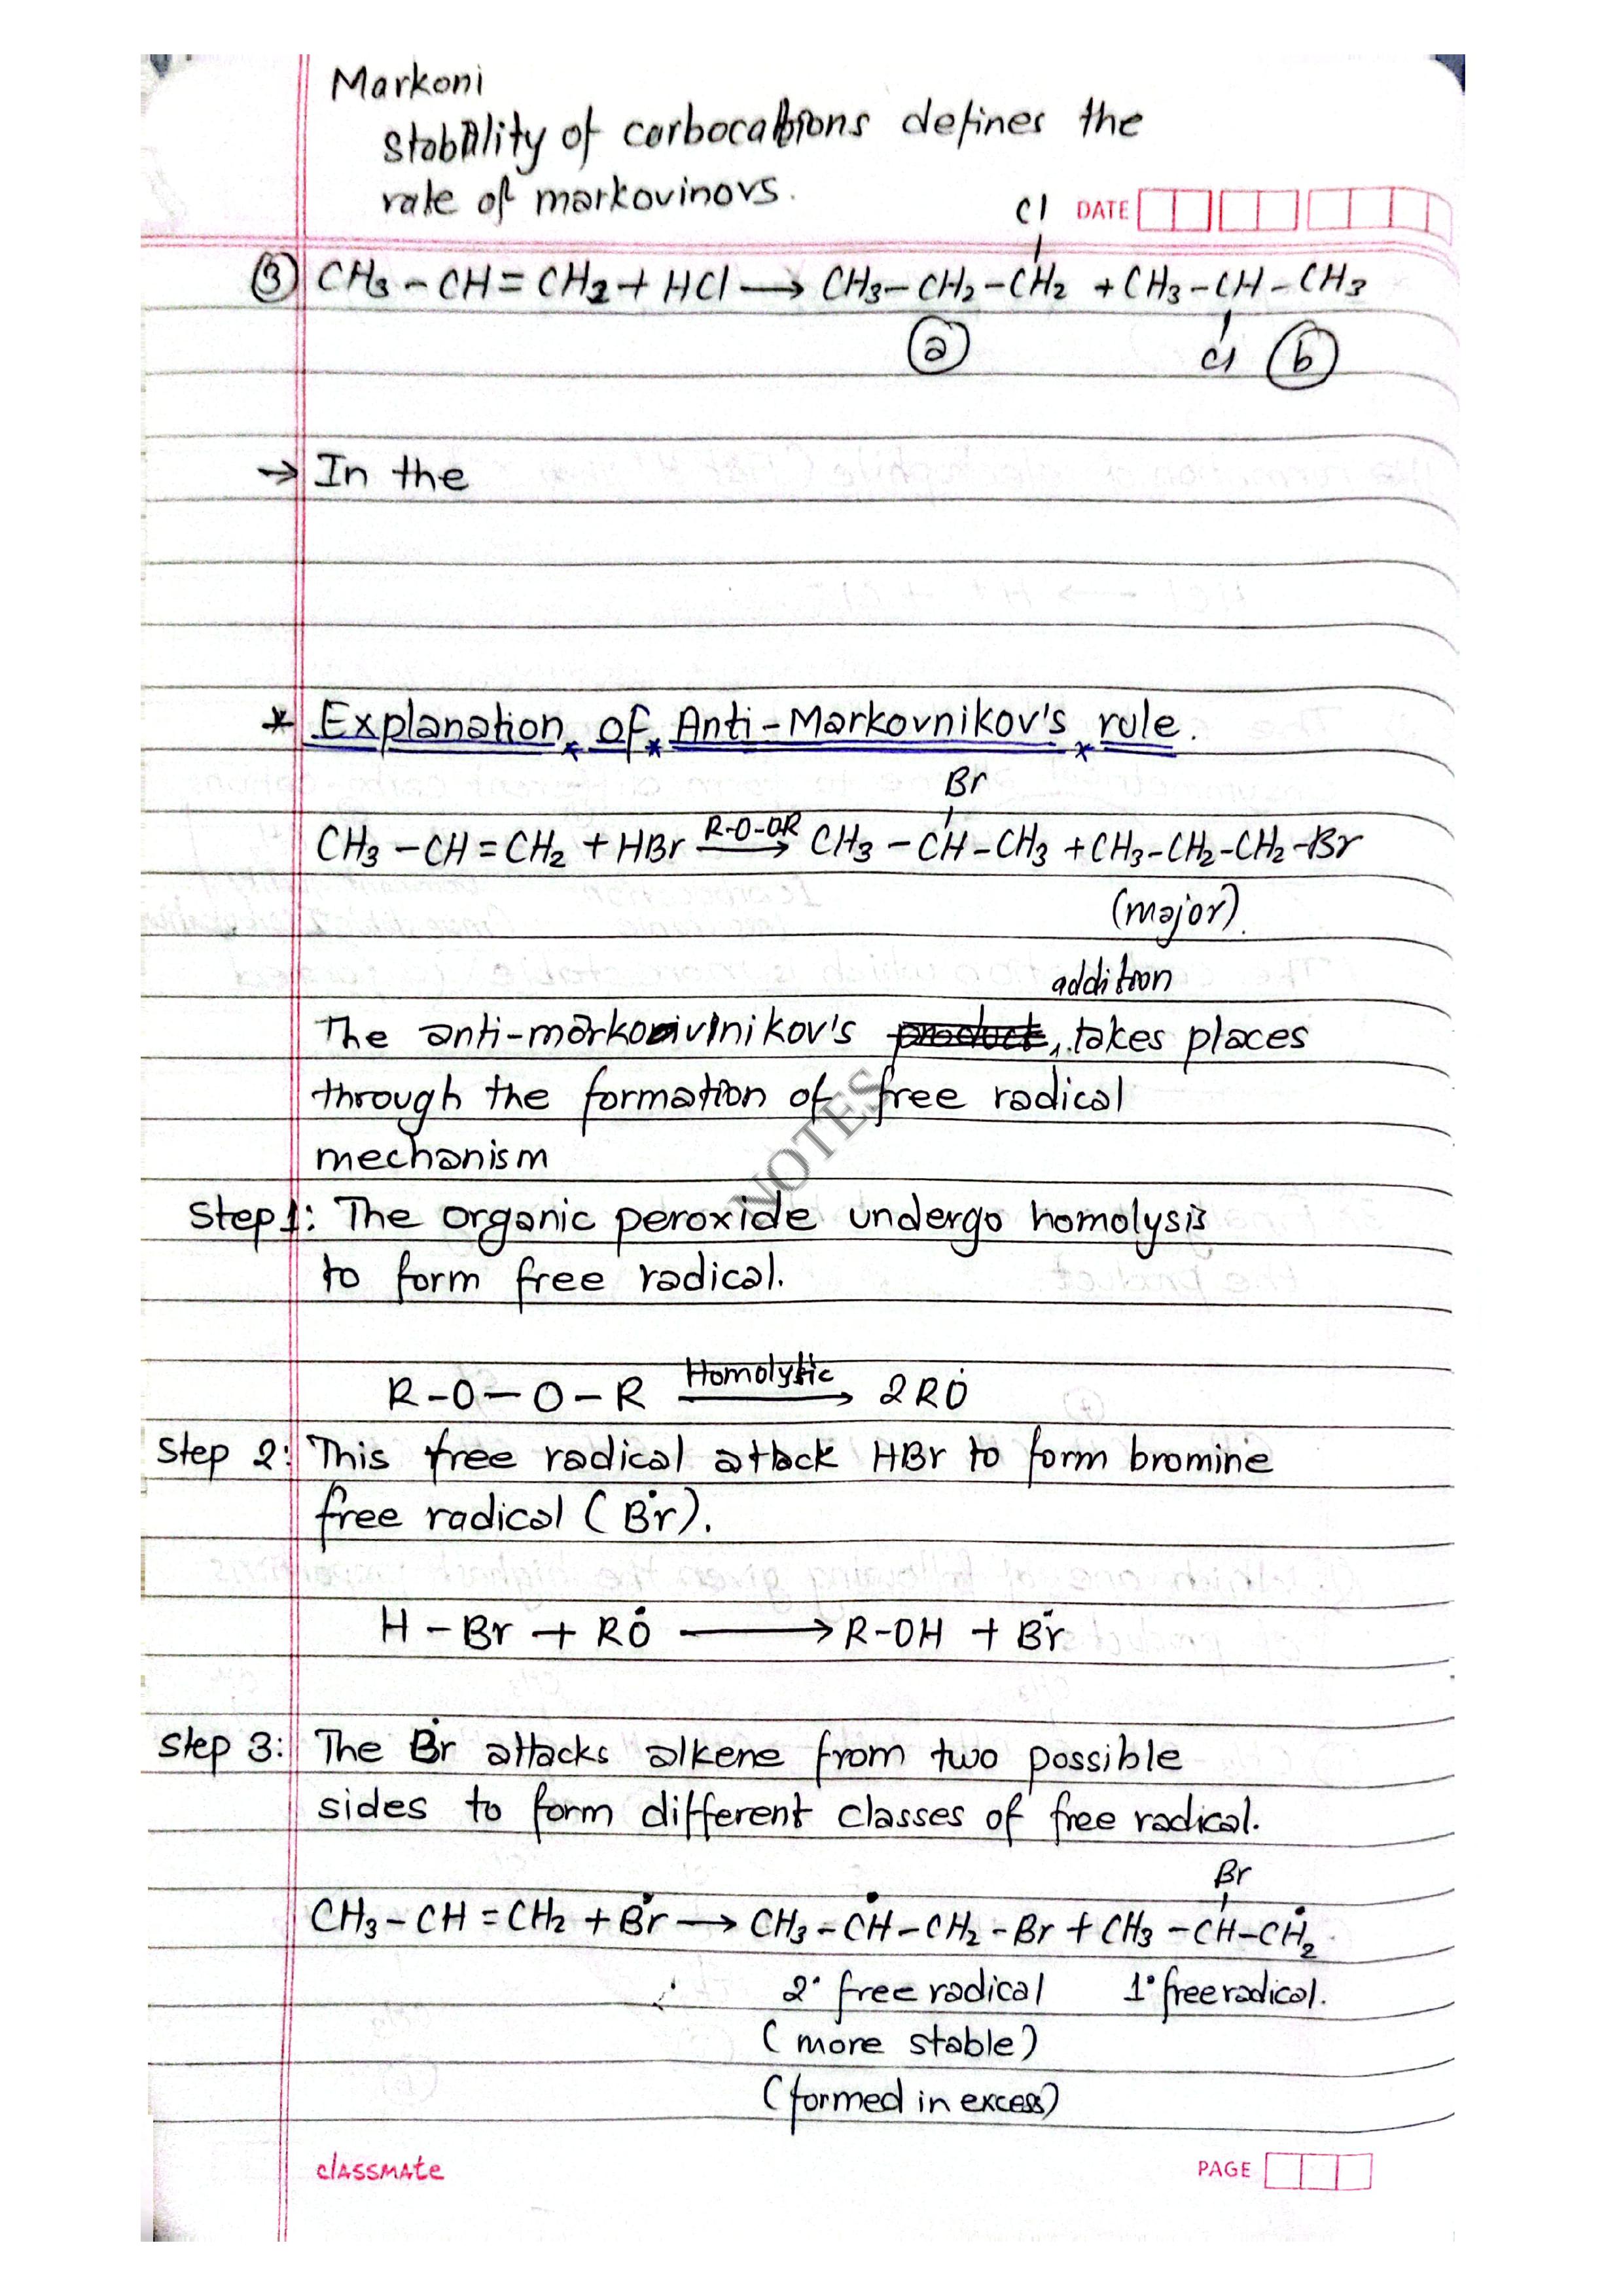 Markoni
stability of carbocations defines the
rate of markovinovs.
Cl DATE
③ CH3 - CH = CH2 + HCl → CH3 - CH2 - CH2 + CH3 - CH - CH3
ⓐ Cl ⓑ
→ In the
* Explanation of Anti-Markovnikov's rule.
Br
CH3 - CH = CH2 + HBr R-O-OR → CH3 - CH - CH3 + CH3 - CH2 - CH2 - Br
(major).
addition
The anti-markovinikov's product, takes places
through the formation of free radical
NOTES
mechanism
Step 1: The organic peroxide undergo homolysis
to form free radical.
R-O-O-R Homolytic → 2RȮ
Step 2: This free radical attack HBr to form bromine
free radical (Ḃr).
H - Br + RȮ → R-OH + Ḃr
Step 3: The Ḃr attacks alkene from two possible
sides to form different classes of free radical.
Br
CH3 - CH = CH2 + Ḃr → CH3 - ĊH - CH2 - Br + CH3 - CH - ĊH2
2° free radical 1° free radical.
(more stable)
(formed in excess)
classmate PAGE